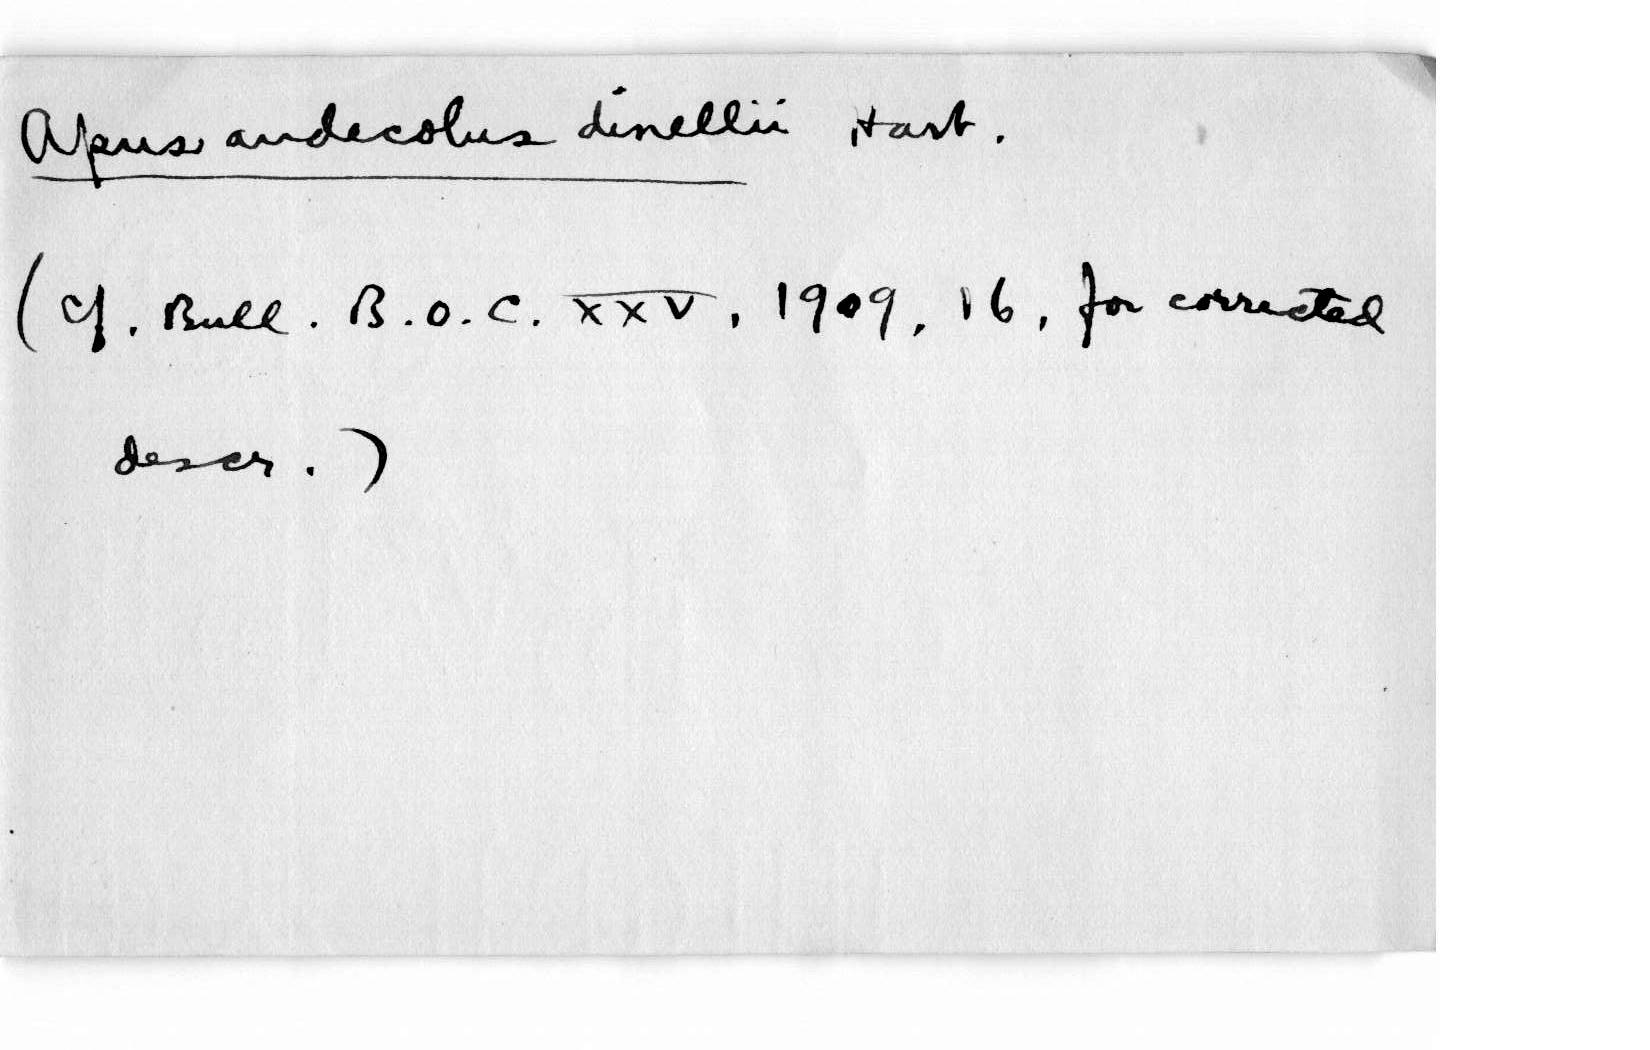 Apus andecolus dinellii Hart.
(Cf. Bull. B.O.C. XXV, 1909, 16, for corrected
descr.)